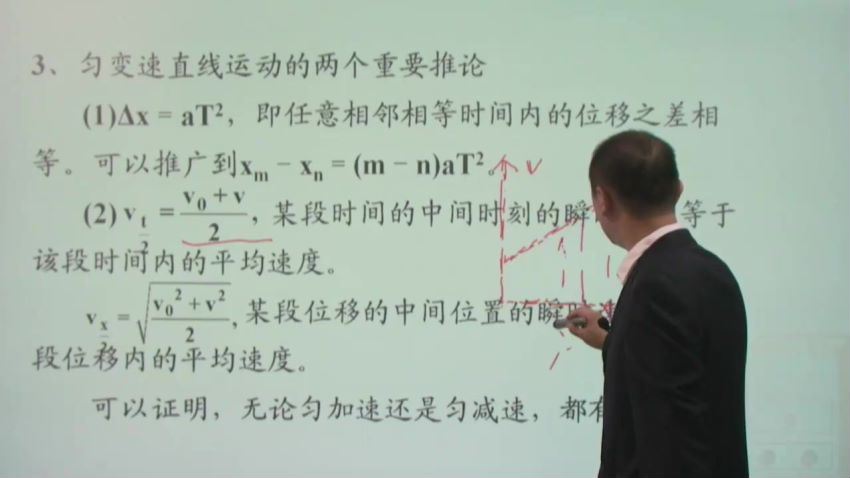 3、匀变速直线运动的两个重要推论
(1)Δx = aT²，即任意相邻相等时间内的位移之差相
等。可以推广到xₘ − xₙ = (m − n)aT²。
(2) v_{t/2} = (v₀ + v)/2，某段时间的中间时刻的瞬 等于
该段时间内的平均速度。
v_{x/2} = √((v₀² + v²)/2)，某段位移的中间位置的瞬时
段位移内的平均速度。
可以证明，无论匀加速还是匀减速，都有
v